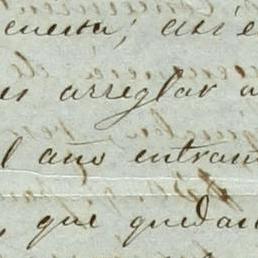 cuenta; así
es arreglar a
l año entran
, que queda